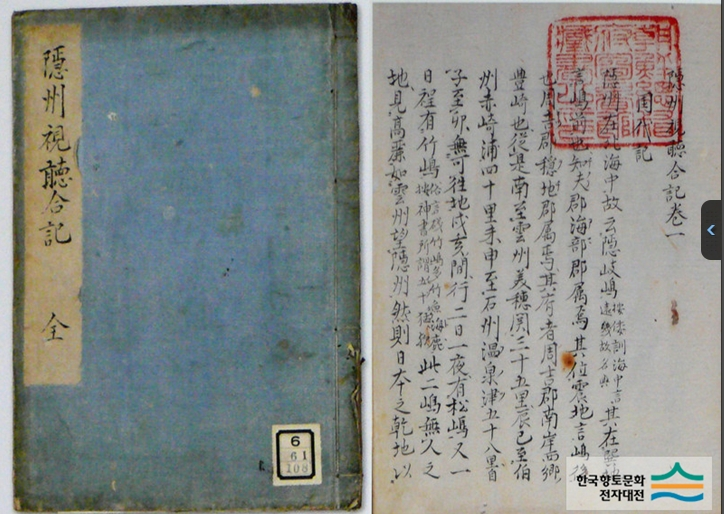 隱州視聽合記
全
6
61
108
隱州視聽合記巻一
国代記
隱州在北海中故云隱岐嶋按倭訓海中言遠幾故名歟其在巽地
言嶋前也知夫郡海部郡属焉其位震地言嶋後
也周吉郡穏地郡属焉其府者周吉郡南岸西郷
豊崎也従是南至雲州美穂関三十五里辰巳至伯
州赤崎浦四十里未申至石州温泉津五十八里自
子至卯無可往地戍亥間行二日一夜有松嶋又一
日程有竹嶋俗言磯竹嶋多竹魚海鹿按神書所謂五十猛歟此二嶋無人之
地見高麗如雲州望隱州然則日本之乾地以
한국향토문화
전자대전